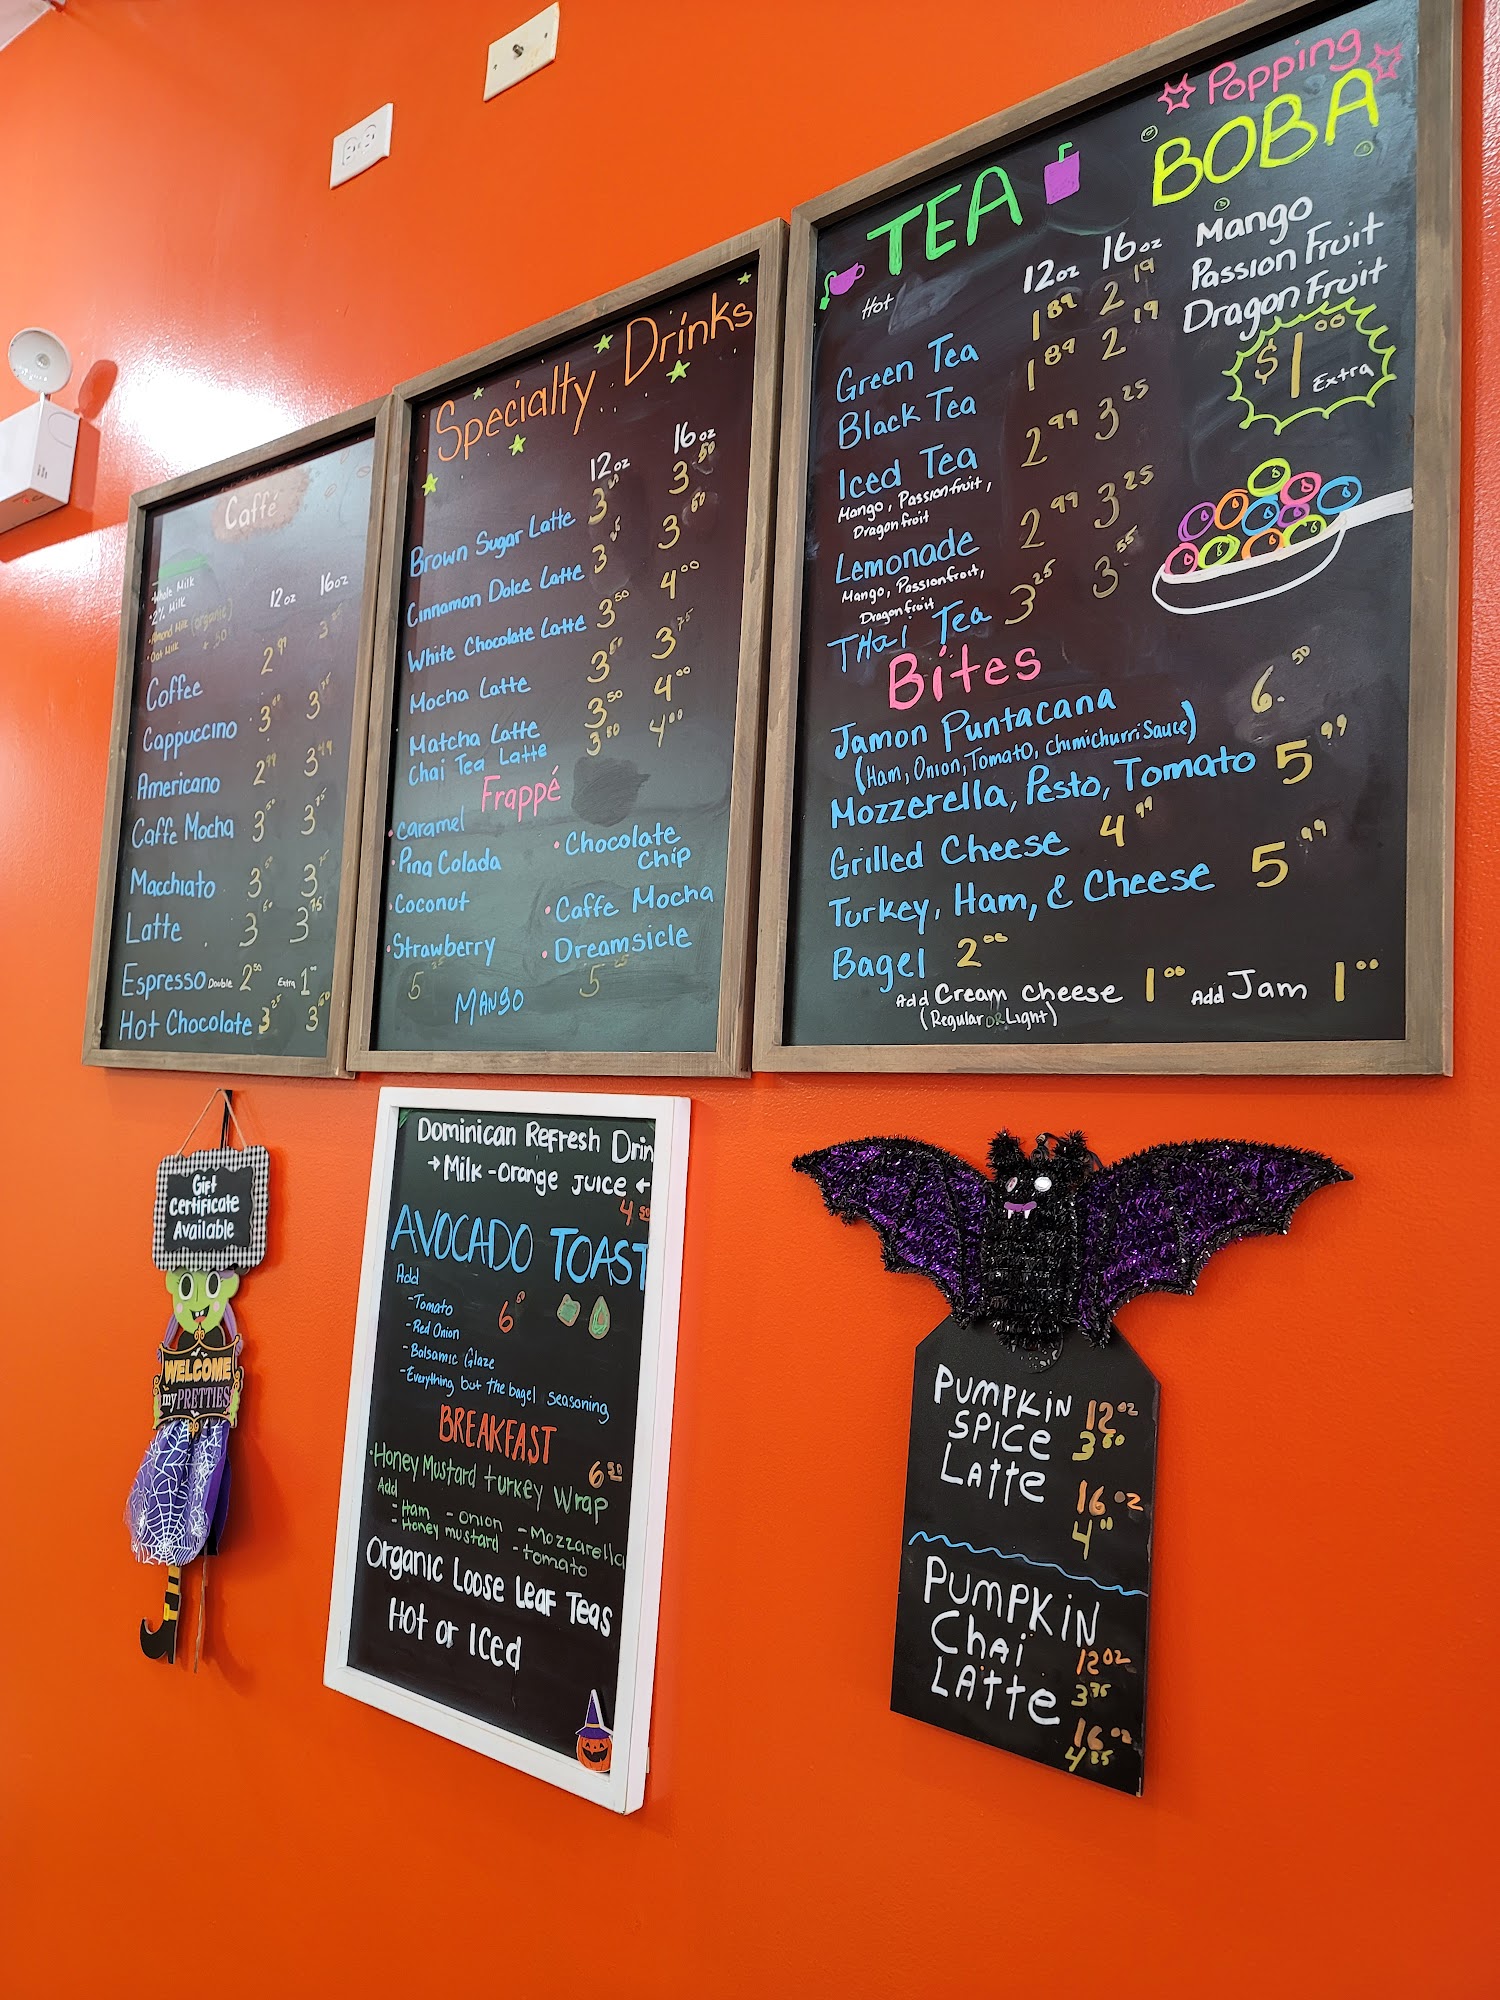 Caffé
• Whole Milk
• 2% Milk
• Almond Milk (organic)
• Oat Milk + 50
12 oz 16 oz
Coffee 2 99
Cappuccino 3 3 75
Americano 2 99 3 49
Caffe Mocha 3 50 3 75
Macchiato 3 50 3 75
Latte 3 50 3 75
Espresso Double 2 50 Extra 1 00
Hot Chocolate 3 25 3 50
Specialty Drinks
12 oz 16 oz
Brown Sugar Latte 3 3 50
Cinnamon Dolce Latte 3 3 60
White Chocolate Latte 3 50 4 00
Mocha Latte 3 50 3 75
Matcha Latte 3 50 4 00
Chai Tea Latte 3 80 4 00
Frappé
• Caramel
• Pina Colada
• Coconut
• Strawberry
5 25
• Chocolate Chip
• Caffe Mocha
• Dreamsicle
5 25
Mango
TEA
Hot
12 oz 16 oz
Green Tea 1 89 2 19
Black Tea 1 89 2 19
Iced Tea 2 99 3 25
Mango, Passionfruit,
Dragonfruit
Lemonade 2 99 3 25
Mango, Passionfruit,
Dragonfruit
THai Tea 3 25 3.55
Popping
BOBA
Mango
Passion Fruit
Dragon Fruit
$1 00
Extra
Bites
Jamon Puntacana 6.50
(Ham, Onion, Tomato, chimichurri Sauce)
Mozzerella, Pesto, Tomato 5 99
Grilled Cheese 4 99
Turkey, Ham, & Cheese 5 99
Bagel 2 00
Add Cream cheese 1 00 Add Jam 1 00
(Regular OR Light)
Gift
Certificate
Available
WELCOME
my PRETTIES
Dominican Refresh Drin
→ Milk - Orange Juice ←
4 50
AVOCADO TOAST
Add
- Tomato
- Red Onion
- Balsamic Glaze
- Everything but the bagel seasoning
6
BREAKFAST
• Honey Mustard turkey Wrap 6 50
Add
- Ham - onion - Mozzarella
- Honey mustard - tomato
Organic Loose Leaf Teas
Hot or Iced
PUMPKIN
SPICE
LATTE
12 oz
3 60
16 oz
4 00
PUMPKIN
Chai
LATTE
12 oz
3 75
16 oz
4 25